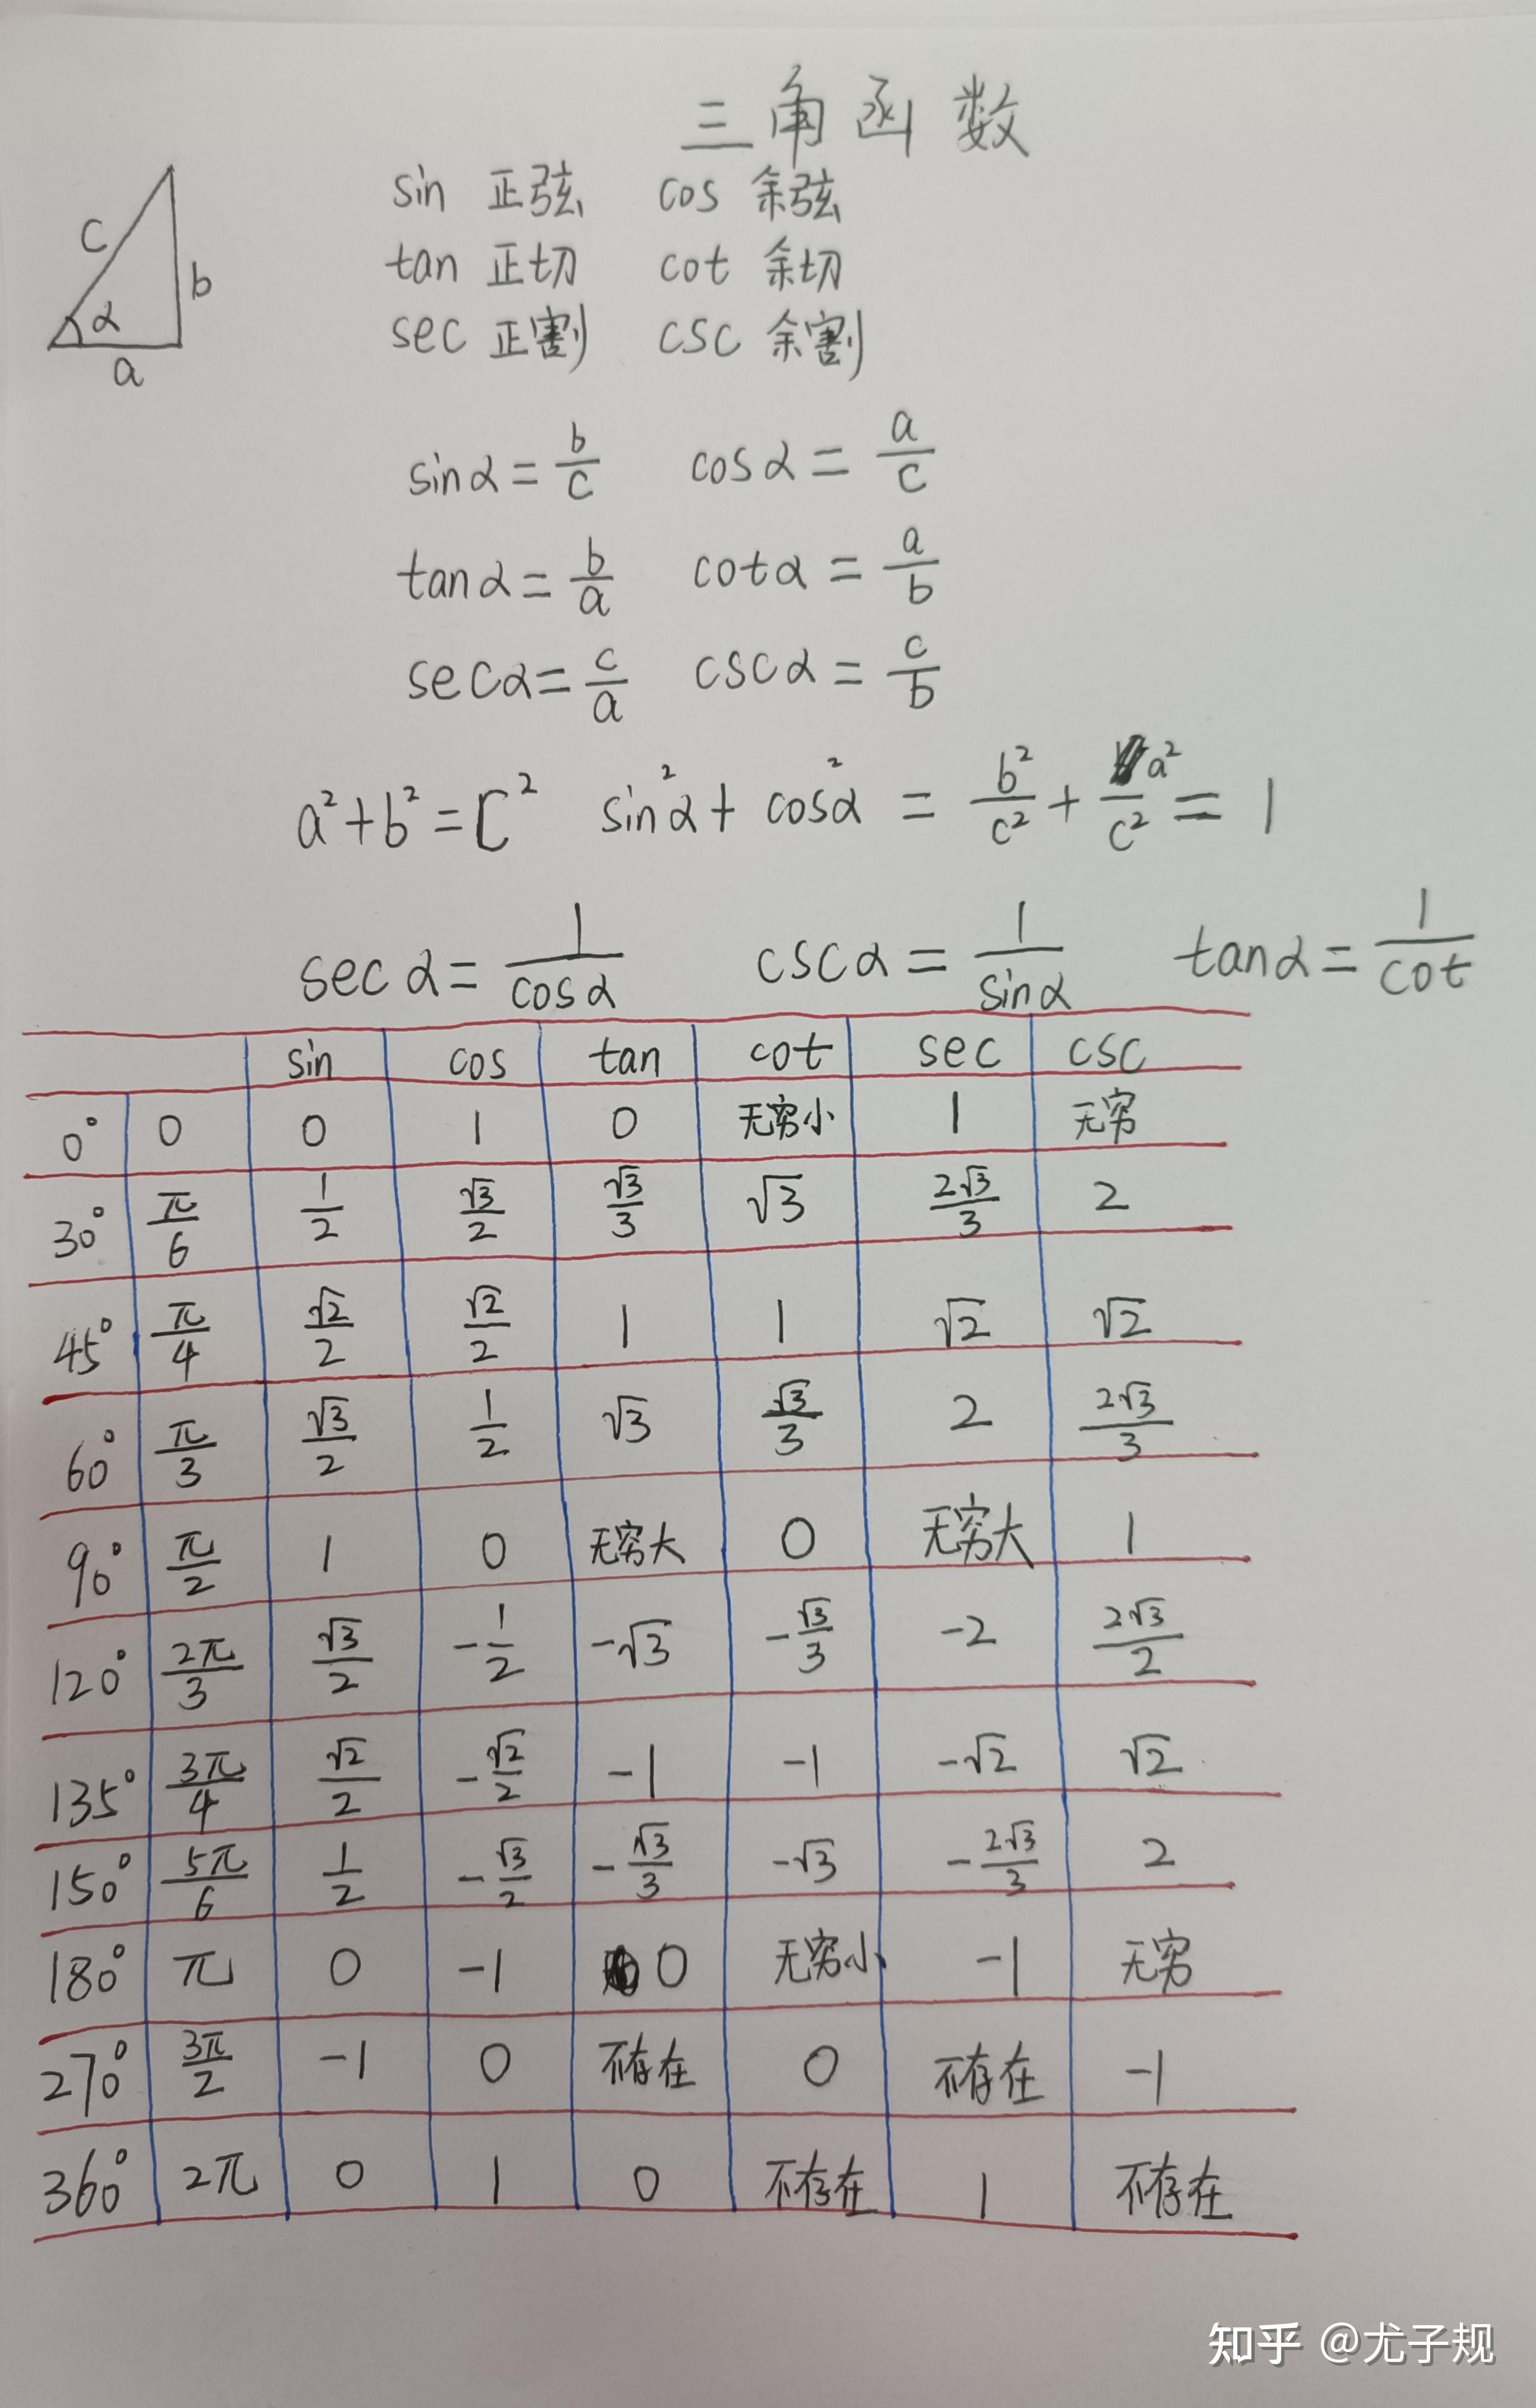 三角函数
sin 正弦 cos 余弦
tan 正切 cot 余切
sec 正割 csc 余割
c
b
α
a
sinα = b/c cosα = a/c
tanα = b/a cotα = a/b
secα = c/a cscα = c/b
a² + b² = C² sin²α + cos²α = b²/c² + a²/c² = 1
sec α = 1/cosα cscα = 1/sinα tanα = 1/cot
sin cos tan cot sec csc
0° 0 0 1 0 无穷小 1 无穷
30° π/6 1/2 √3/2 √3/3 √3 2√3/3 2
45° π/4 √2/2 √2/2 1 1 √2 √2
60° π/3 √3/2 1/2 √3 √3/3 2 2√3/3
90° π/2 1 0 无穷大 0 无穷大 1
120° 2π/3 √3/2 -1/2 -√3 -√3/3 -2 2√3/2
135° 3π/4 √2/2 -√2/2 -1 -1 -√2 √2
150° 5π/6 1/2 -√3/2 -√3/3 -√3 -2√3/3 2
180° π 0 -1 0 无穷小 -1 无穷
270° 3π/2 -1 0 不存在 0 不存在 -1
360° 2π 0 1 0 不存在 1 不存在
知乎 @尤子规